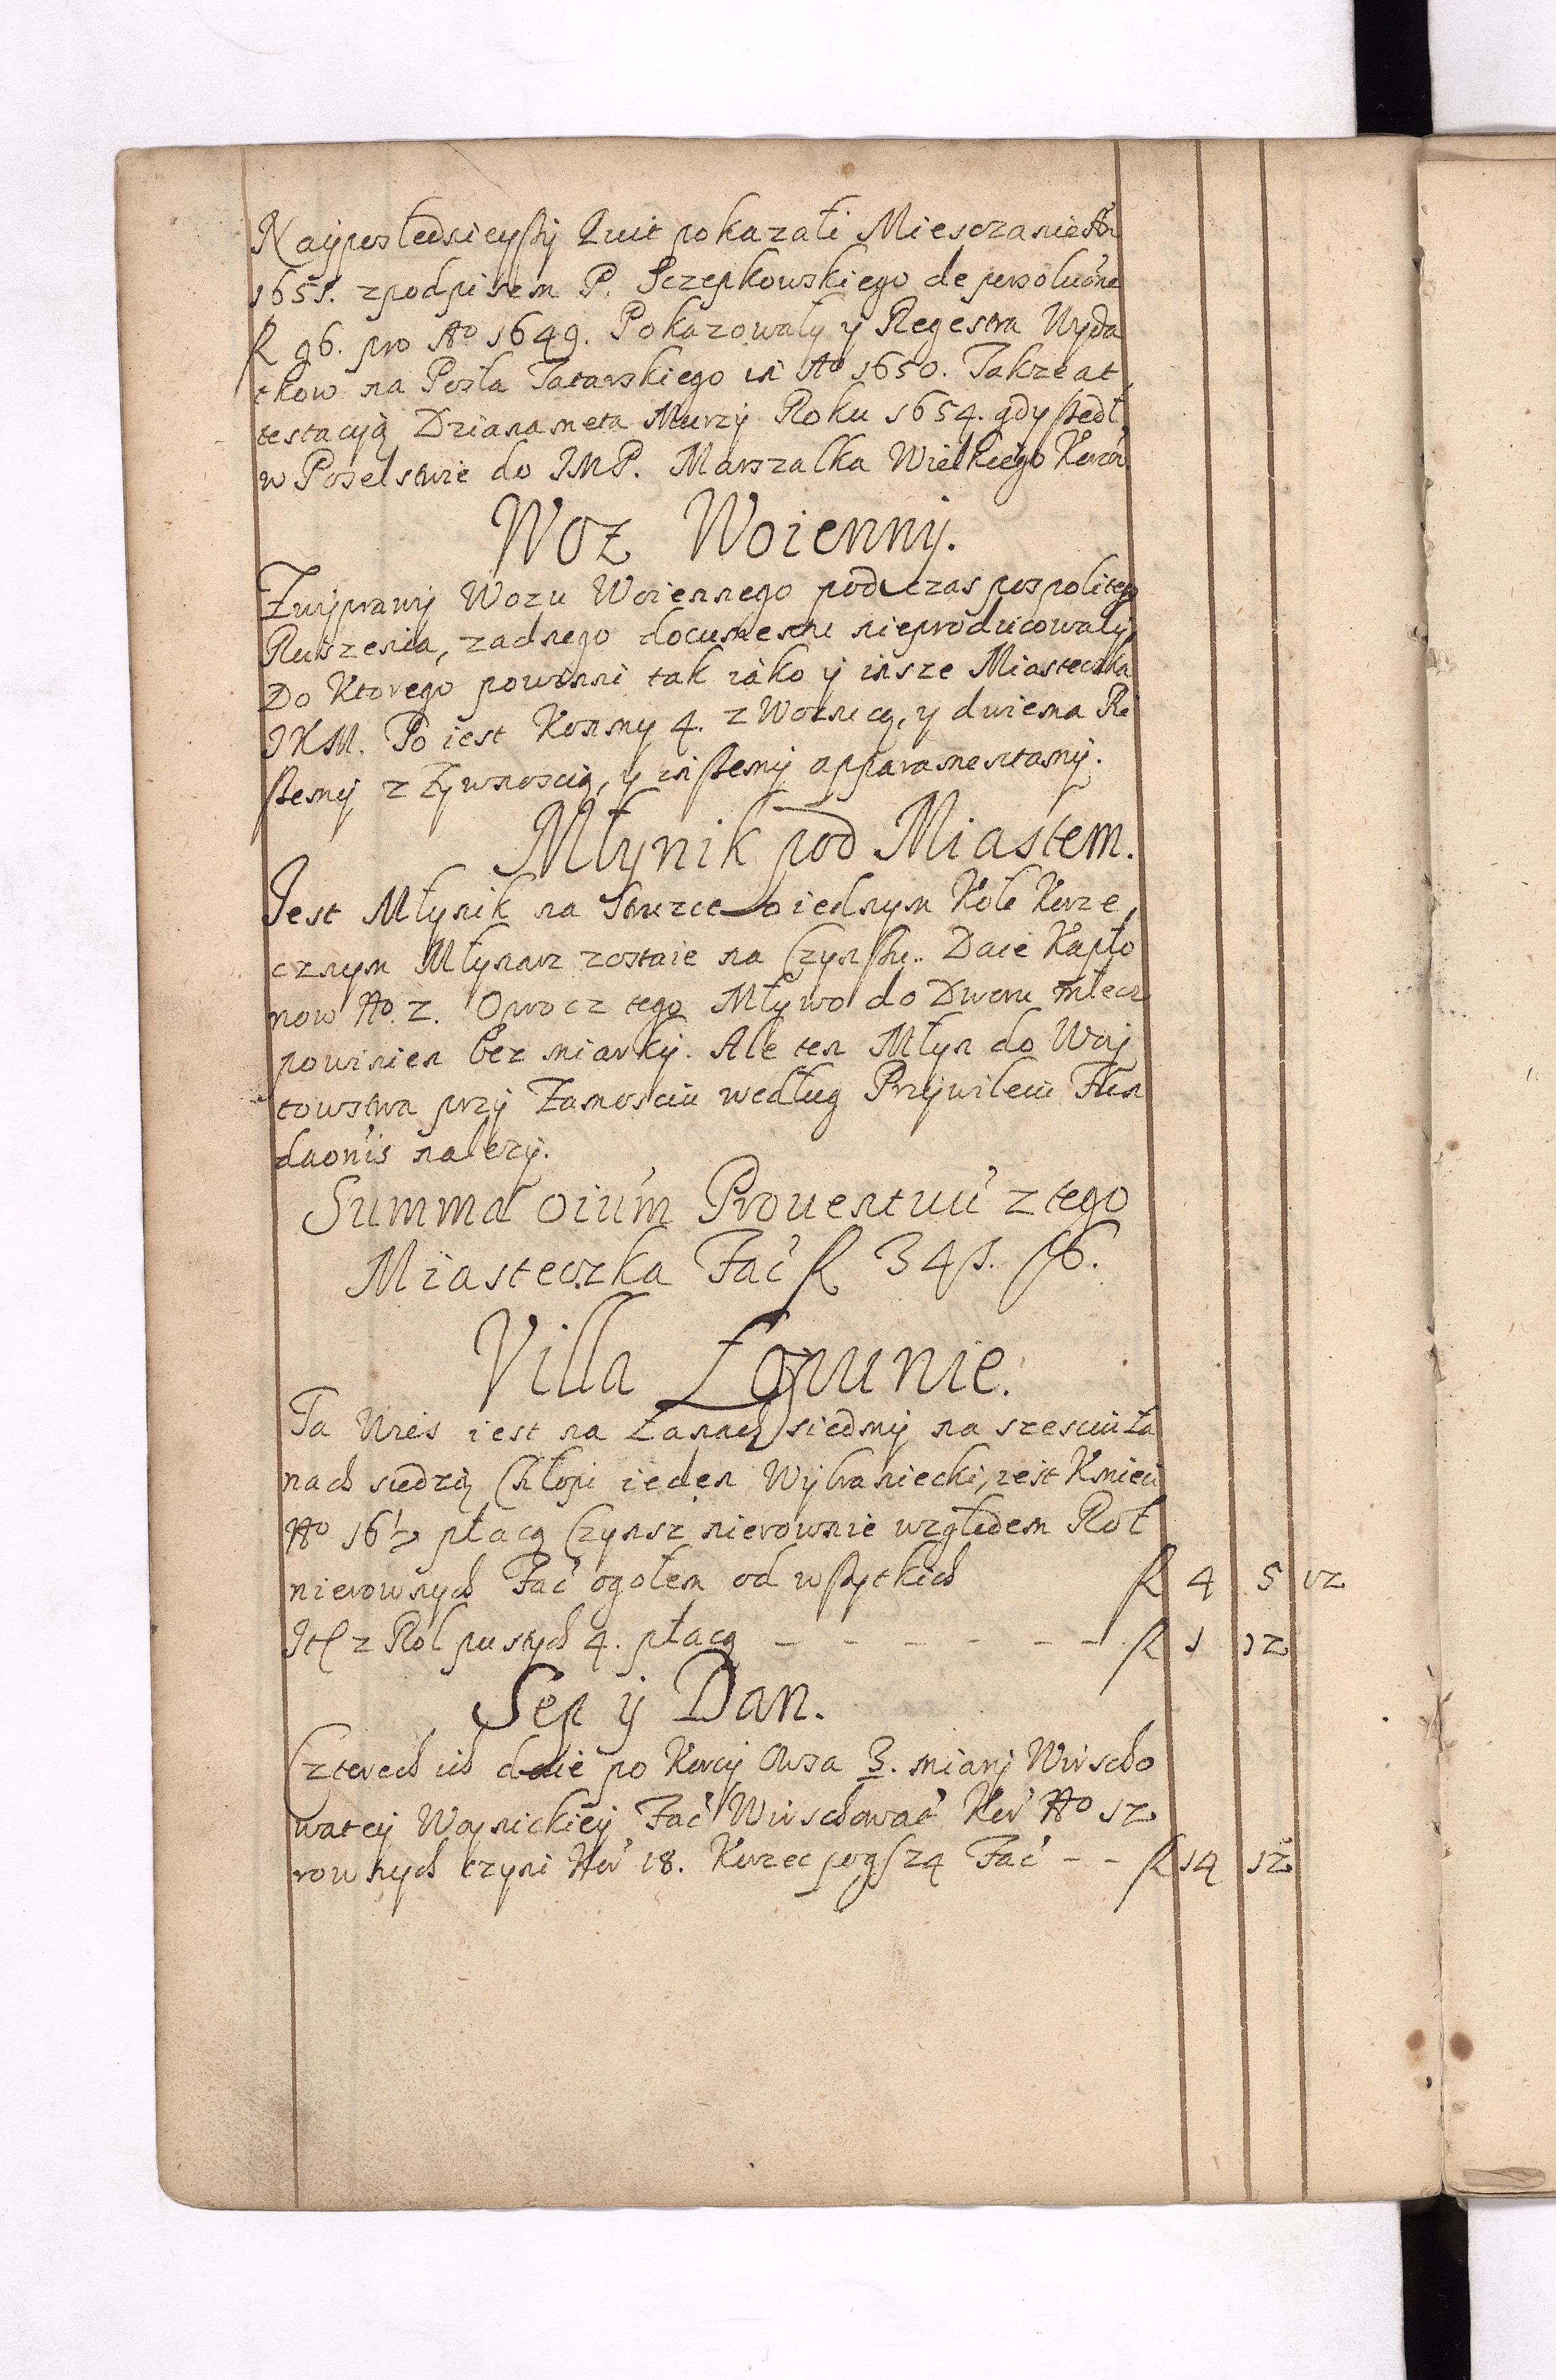 Naÿposlednieÿszÿ Quit pokazali Miesczanie Ao
1651. zpodpisem P. Sczepkowskiego de persolutõne
fl 96. pro Aõ 1649. Pokazowalÿ ÿ Regestra Wÿda
tkow na Posła Tatarskiego in Aõ 1650. Takze at
testacÿą Dzianameta Murzÿ Roku 1654. gdÿ szedł
w Poselstwie do JMP. Marszałka Wielkiego Koron
Woz Woiennÿ.
Zwÿprawÿ Wozu Woiennego podczas pospolitego
Ruszenia, zadnego documentu nieproducowalÿ,
Do Ktorego powinni tak iako ÿ insze Miasteczka
JKM. To iest Konmÿ 4. z Woznicą, ÿ dwiema Pi
szemÿ z Zÿwnoscią, ÿ inszemÿ apparamentamÿ.
Młynik pod Miastem.
Jest Młynik na Strudze o iednym Kole Korze
cznym Młynarz zostaie na Czynszu. Daie Kapło
now No. 2. Oprocz tego Mływo do Dworu mlecz
powinien bez miarkÿ. Ale ten Młyn do Woÿ
towstwa przÿ Zamosciu według Przÿwileiu Fun
daõnis nalezÿ.
Summa oiũm Proventuũ z tego
Miasteczka Fac̃ fl 341. 16.
Villa Łopunie.
Ta Wies iest na Łanach siedmÿ na szesciu Ła
nach siedzą Chłopi ieden Wÿbraniecki, iest Kmieci
No 16½ płacą Czynsz nierownie względem Rol
nierownych Fac̃ ogołem od wszÿtkich fl 4 5 12
Itẽ z Rol pustych 4. płacą - - - - - - fl 1 12
Sep ÿ Dan.
Czterech ich daie po Korcÿ Owsa 3. miarÿ Wirscho
wateÿ Woÿnickieÿ Fac̃ Wirschowat̃ Kor̃ No 12
rownych czyni Kor̃ 18. Korzec po gſ 24 Fac̃ - - fl 14 12